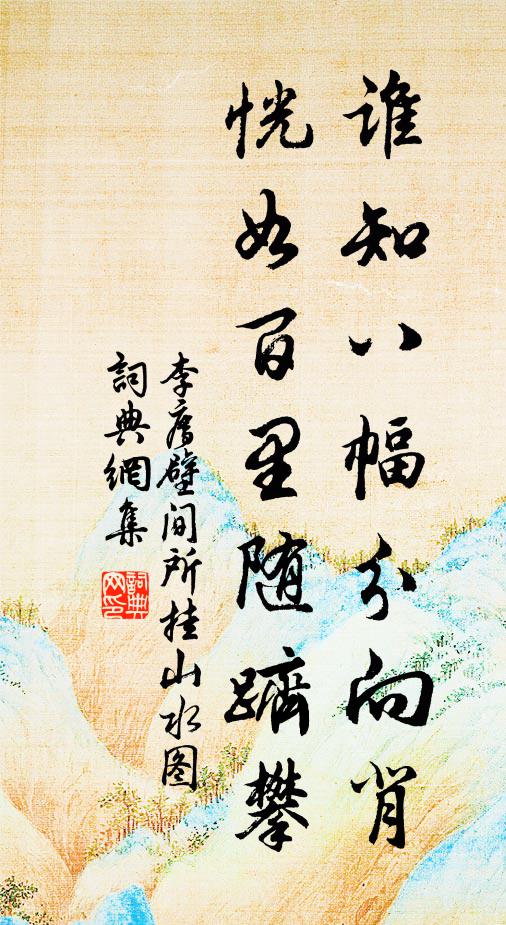 谁知八幅分向背
恍如百里随躋攀
李唐壁间所挂山水图
詞典網集
詞典网印